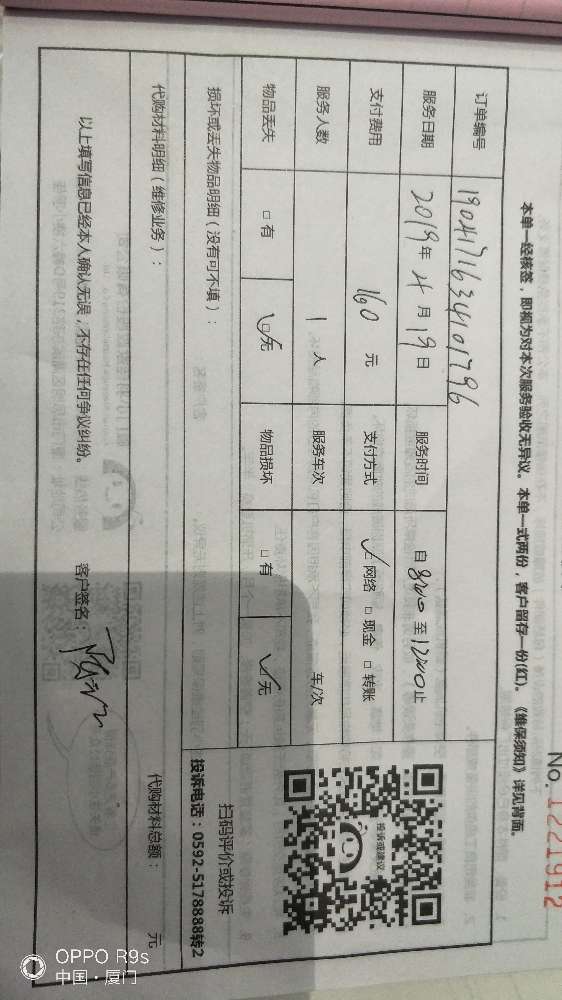 No. 1221912
本单一经核签，即视为对本次服务验收无异议。本单一式两份，客户留存一份(红)。《维保须知》详见背面。
订单编号 1904171634101796
服务日期 2019年4月19日 服务时间 自8:00至12:00止
支付费用 160元 支付方式 ☑网络 □现金 □转账
服务人数 1人 服务车次 车/次
物品丢失 □有 ☑无 物品损坏 □有 ☑无
损坏或丢失物品明细（没有可不填）：
投诉或建议
扫码评价或投诉
投诉电话：0592-5178888转2
代购材料明细（维修业务）：
代购材料总额： 元
以上填写信息已经本人确认无误，不存在任何争议纠纷。 客户签名：
OPPO R9s
中国·厦门